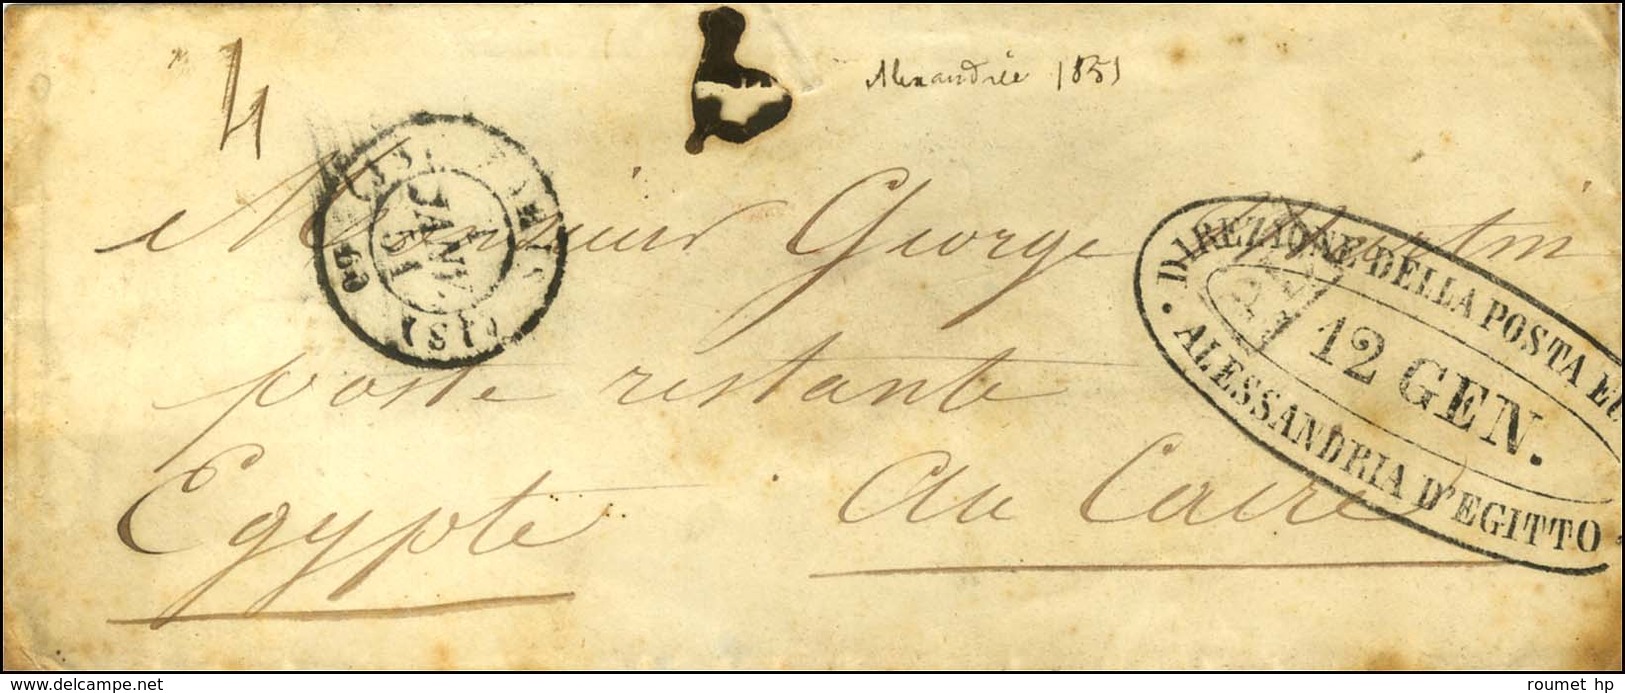 4
Alexandrie 1851
JANV.
51
(S)
Monsieur George Martin
DIREZIONE DELLA POSTA EU
12 GEN.
ALESSANDRIA D'EGITTO
poste restante
Egypte au Caire
www.delcampe.net
roumet hp